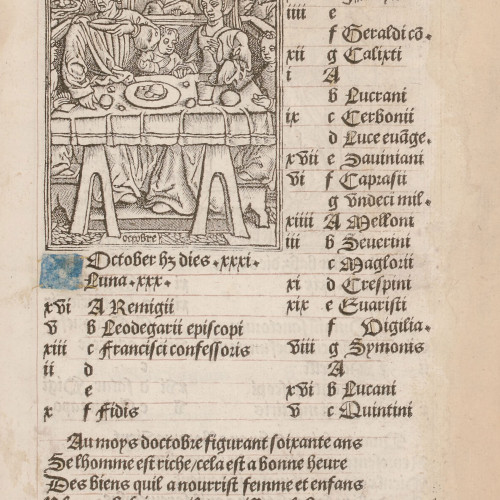 octobre
October hz dies .xxxi.
Luna .xxx.
xvi A Remigii
v b Leodegarii episcopi
xiii c Francisci confessoris
ii d
e
x f Fidis
iiii e
f Geraldi cō.
xii g Calixti
i A
b Lucrani
ix c Cerbonii
d Luce euāge.
xvii e Sauiniani
vi f Caprasii
g vndeci mil.
xiiii A Melloni
iii b Seuerini
c Maglorii
xi d Crespini
xix e Euaristi
f Vigilia.
viii g Symonis
A
xvi b Lucani
v c Quintini
Au moys doctobre figurant soixante ans
Se lhomme est riche/cela est a bonne heure
Des biens quil a nourrist femme et enfans